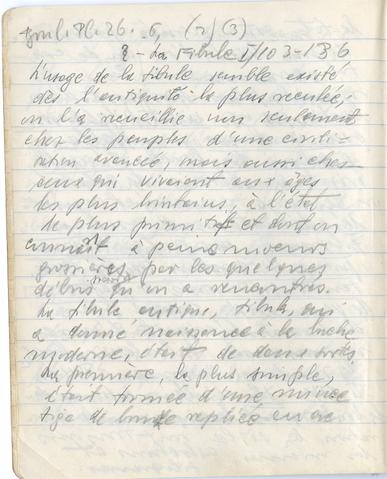 Pl. 26. 6, (2) (3)
- La Fibule I/103-136
L'usage de la fibule semble existé
dès l'antiquité la plus reculée,
on l'a recueillie non seulement
chez les peuples d'une civili-
sation avancée, mais aussi chez
ceux qui vivaient aux âges
les plus lointains, à l'état
le plus primitif et dont on
connaît à peine moeurs
grossières, par les quelques
débris qu'on a rencontrés.
La fibule antique, fibula, qui
a donné naissance à la broche
moderne, était de deux sortes.
La première, la plus simple,
était formée d'une mince
tige de bronze repliée en arc